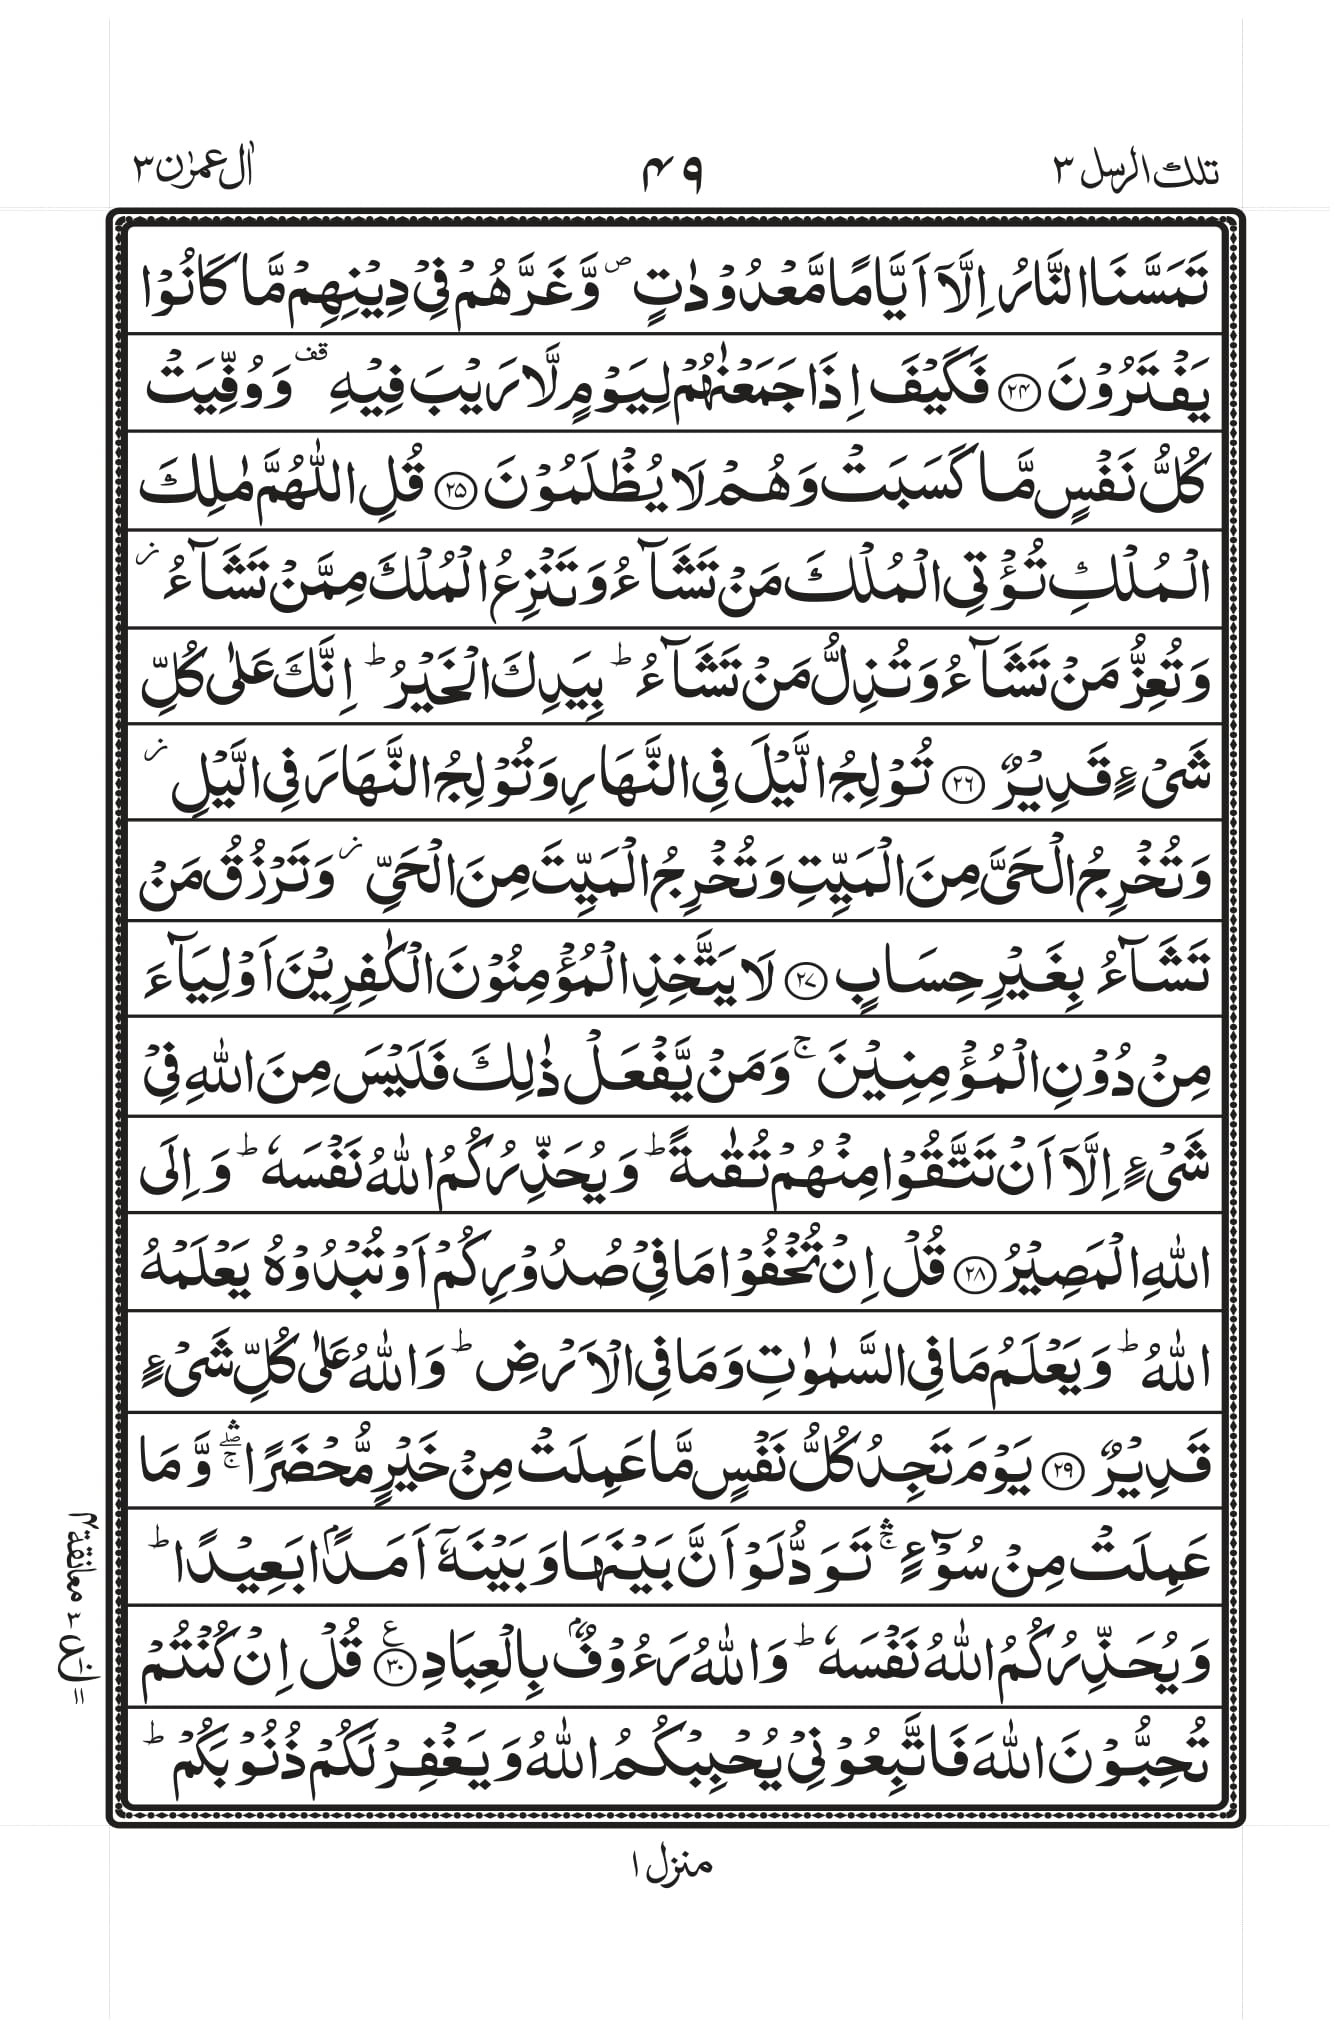 تلك الرسل ٣
٤٩
اٰل عمرٰن ٣
تَمَسَّنَا النَّارُ اِلَّاۤ اَيَّامًا مَّعۡدُوۡدٰتٍ ۖ وَّغَرَّهُمۡ فِىۡ دِيۡنِهِمۡ مَّا كَانُوۡا
يَفۡتَرُوۡنَ ﴿۲۴﴾ فَكَيۡفَ اِذَا جَمَعۡنٰهُمۡ لِيَوۡمٍ لَّا رَيۡبَ فِيۡهِ ۟ وَوُفِّيَتۡ
كُلُّ نَفۡسٍ مَّا كَسَبَتۡ وَهُمۡ لَا يُظۡلَمُوۡنَ ﴿۲۵﴾ قُلِ اللّٰهُمَّ مٰلِكَ
الۡمُلۡكِ تُؤۡتِى الۡمُلۡكَ مَنۡ تَشَآءُ وَتَنۡزِعُ الۡمُلۡكَ مِمَّنۡ تَشَآءُ ز
وَتُعِزُّ مَنۡ تَشَآءُ وَتُذِلُّ مَنۡ تَشَآءُ ؕ بِيَدِكَ الۡخَيۡرُ ؕ اِنَّكَ عَلٰى كُلِّ
شَىۡءٍ قَدِيۡرٌ ﴿۲۶﴾ تُوۡلِجُ الَّيۡلَ فِى النَّهَارِ وَتُوۡلِجُ النَّهَارَ فِى الَّيۡلِ ز
وَتُخۡرِجُ الۡحَىَّ مِنَ الۡمَيِّتِ وَتُخۡرِجُ الۡمَيِّتَ مِنَ الۡحَىِّ ز وَتَرۡزُقُ مَنۡ
تَشَآءُ بِغَيۡرِ حِسَابٍ ﴿۲۷﴾ لَا يَتَّخِذِ الۡمُؤۡمِنُوۡنَ الۡكٰفِرِيۡنَ اَوۡلِيَآءَ
مِنۡ دُوۡنِ الۡمُؤۡمِنِيۡنَ ۚ وَمَنۡ يَّفۡعَلۡ ذٰلِكَ فَلَيۡسَ مِنَ اللّٰهِ فِىۡ
شَىۡءٍ اِلَّاۤ اَنۡ تَتَّقُوۡا مِنۡهُمۡ تُقٰٮةً ؕ وَيُحَذِّرُكُمُ اللّٰهُ نَفۡسَهٗ ؕ وَاِلَى
اللّٰهِ الۡمَصِيۡرُ ﴿۲۸﴾ قُلۡ اِنۡ تُخۡفُوۡا مَا فِىۡ صُدُوۡرِكُمۡ اَوۡ تُبۡدُوۡهُ يَعۡلَمۡهُ
اللّٰهُ ؕ وَيَعۡلَمُ مَا فِى السَّمٰوٰتِ وَمَا فِى الۡاَرۡضِ ؕ وَاللّٰهُ عَلٰى كُلِّ شَىۡءٍ
قَدِيۡرٌ ﴿۲۹﴾ يَوۡمَ تَجِدُ كُلُّ نَفۡسٍ مَّا عَمِلَتۡ مِنۡ خَيۡرٍ مُّحۡضَرًا ۖۚۛ وَّمَا
عَمِلَتۡ مِنۡ سُوۡٓءٍ ۚۛ تَوَدُّ لَوۡ اَنَّ بَيۡنَهَا وَبَيۡنَهٗۤ اَمَدًۢا بَعِيۡدًا ؕ
وَيُحَذِّرُكُمُ اللّٰهُ نَفۡسَهٗ ؕ وَاللّٰهُ رَءُوۡفٌۢ بِالۡعِبَادِ ﴿۳۰﴾ ع قُلۡ اِنۡ كُنۡتُمۡ
تُحِبُّوۡنَ اللّٰهَ فَاتَّبِعُوۡنِىۡ يُحۡبِبۡكُمُ اللّٰهُ وَيَغۡفِرۡ لَكُمۡ ذُنُوۡبَكُمۡ ؕ
معانقة ٢
٣ ع ١٠ ١١
منزل ١